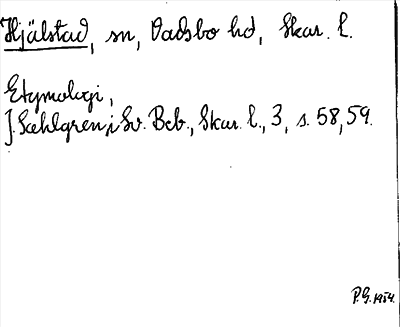 Hjälstad, sn, Vadsbo hd, Skar. l.
Etymologi,
J. Sahlgren i Sv. Beb., Skar. l., 3, s. 58, 59.
P.G. 1954.